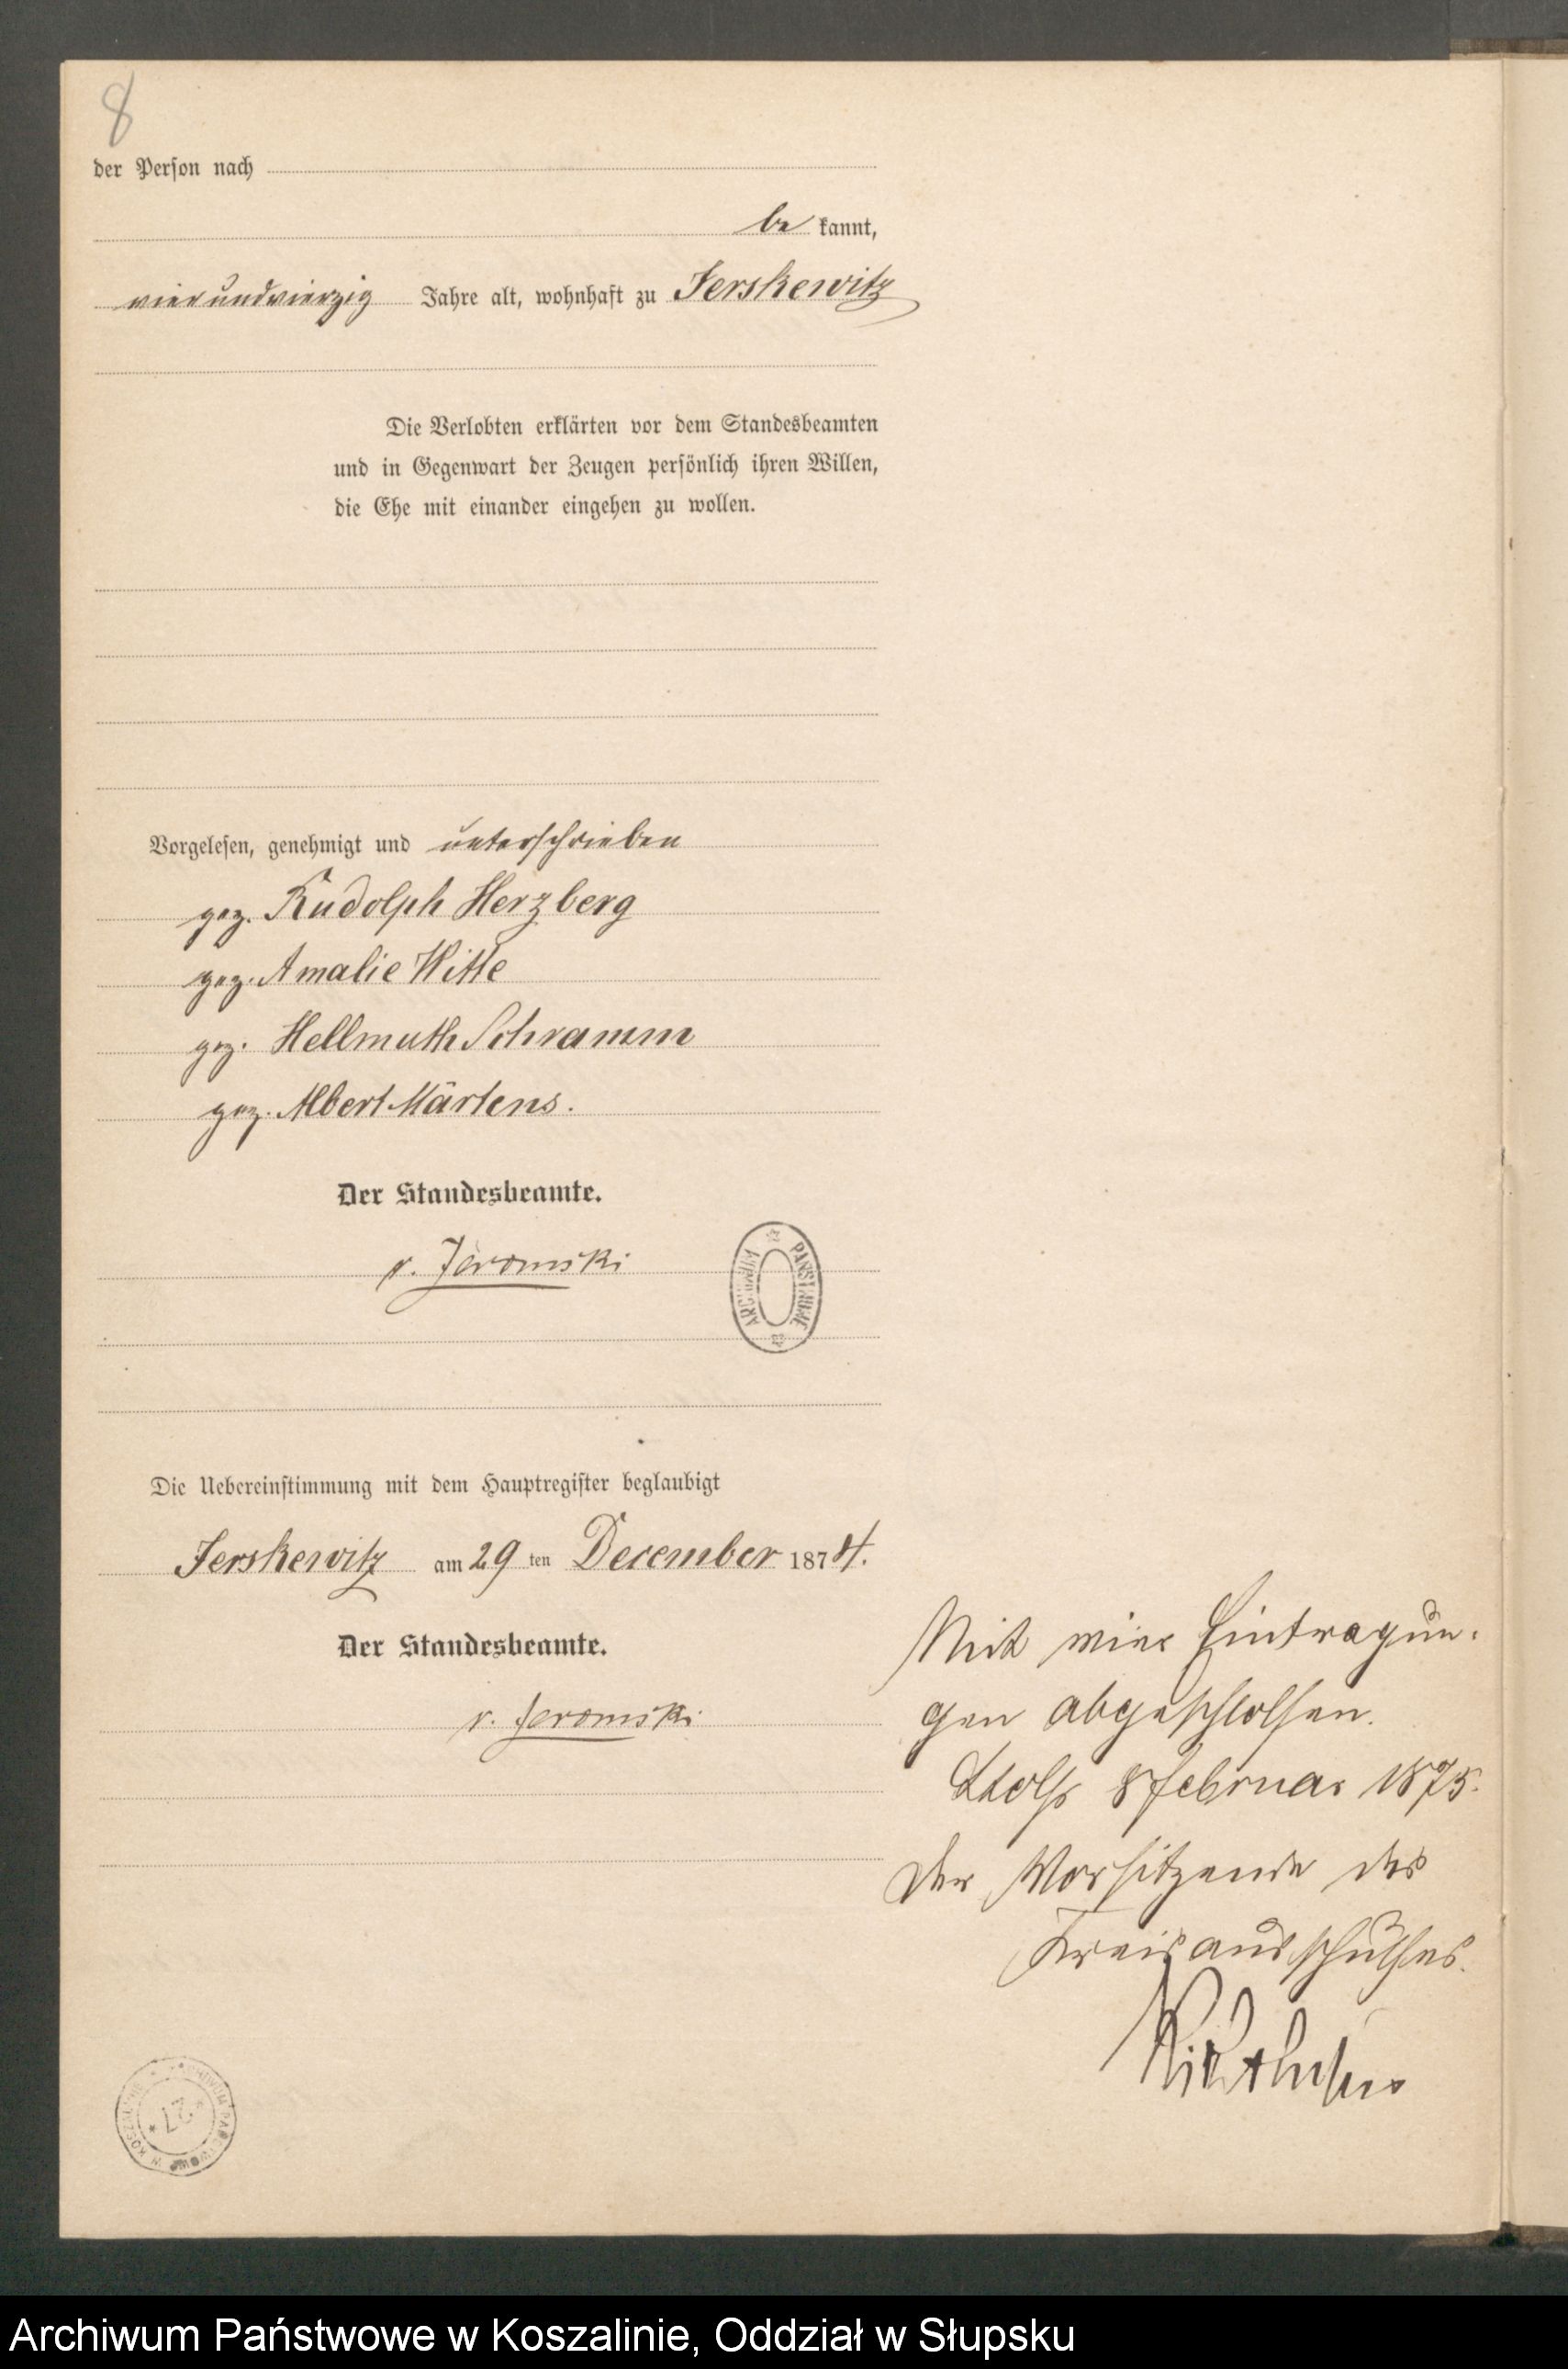 8
der Person nach
be kannt,
vierundvierzig Jahre alt, wohnhaft zu Jerskewitz
Die Verlobten erklärten vor dem Standesbeamten
und in Gegenwart der Zeugen persönlich ihren Willen,
die Ehe mit einander eingehen zu wollen.
Vorgelesen, genehmigt und unterschrieben
gez. Rudolph Herzberg
gez. Amalie Witte
gez. Hellmuth Schramm
gez. Albert Märtens.
Der Standesbeamte.
v. Jeromski
ARCHIWUM PAŃSTWOWE
Die Uebereinstimmung mit dem Hauptregister beglaubigt
Jerskewitz am 29 ten December 1874.
Der Standesbeamte.
v. Jeromski
Mit vier Eintragun-
gen abgeschlossen.
Stolp 8 Februar 1875.
Der Vorsitzende des
Kreisausschusses.
27
Archiwum Państwowe w Koszalinie, Oddział w Słupsku